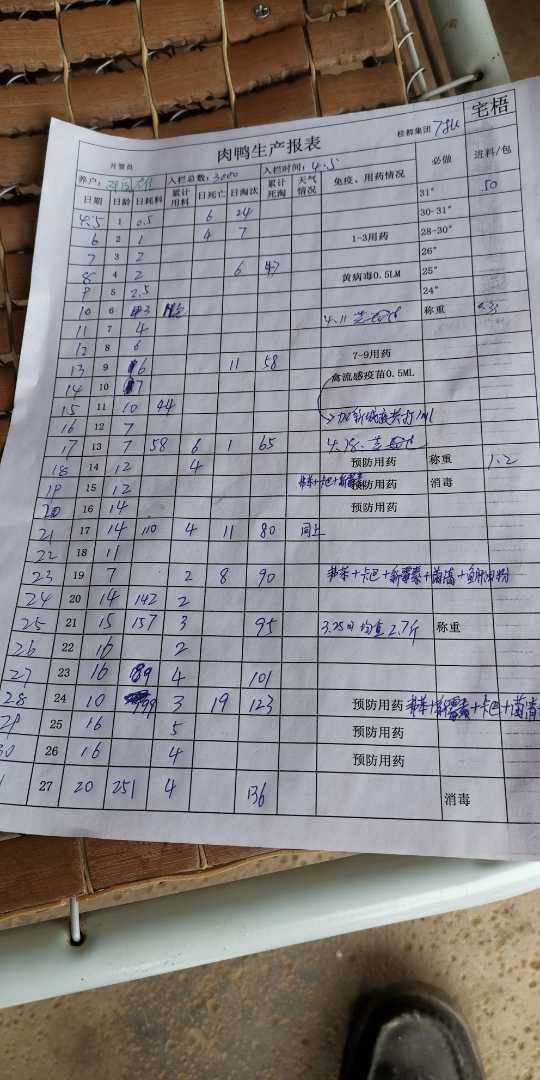 宅梧
肉鸭生产报表
桂柳集团
月管员
养户: 入栏总数: 3000 入栏时间: 4.5
日期 日龄 日耗料 累计用料 日死亡 日淘汰 累计死淘 天气情况 免疫、用药情况 必做 进料/包
4.5 1 0.5 6 24 31° 50
6 2 1 4 7 30-31°
7 3 2 1-3用药 28-30°
8 4 2 6 47 26°
9 5 2.5 黄病毒0.5LM 25°
10 6 3 24°
11 7 4 4.11 称重
12 8 6
13 9 6 11 58 7-9用药
14 10 7 禽流感疫苗0.5ML
15 11 10 44
16 12 7
17 13 7 58 6 1 65 4.18.
18 14 12 4 预防用药 称重 1.2
19 15 12 预防用药 消毒
20 16 14 预防用药
21 17 14 110 4 11 80 同上
22 18 11
23 19 7 2 8 90 +卡巴+新霉素+菌毒+鱼肝油粉
24 20 14 142 2
25 21 15 157 3 95 均重2.7斤 称重
26 22 16 2
27 23 16 189 4 101
28 24 10 199 3 19 123 预防用药 +新霉素+卡巴+菌毒
29 25 16 5 预防用药
30 26 16 4 预防用药
1 27 20 251 4 136 消毒